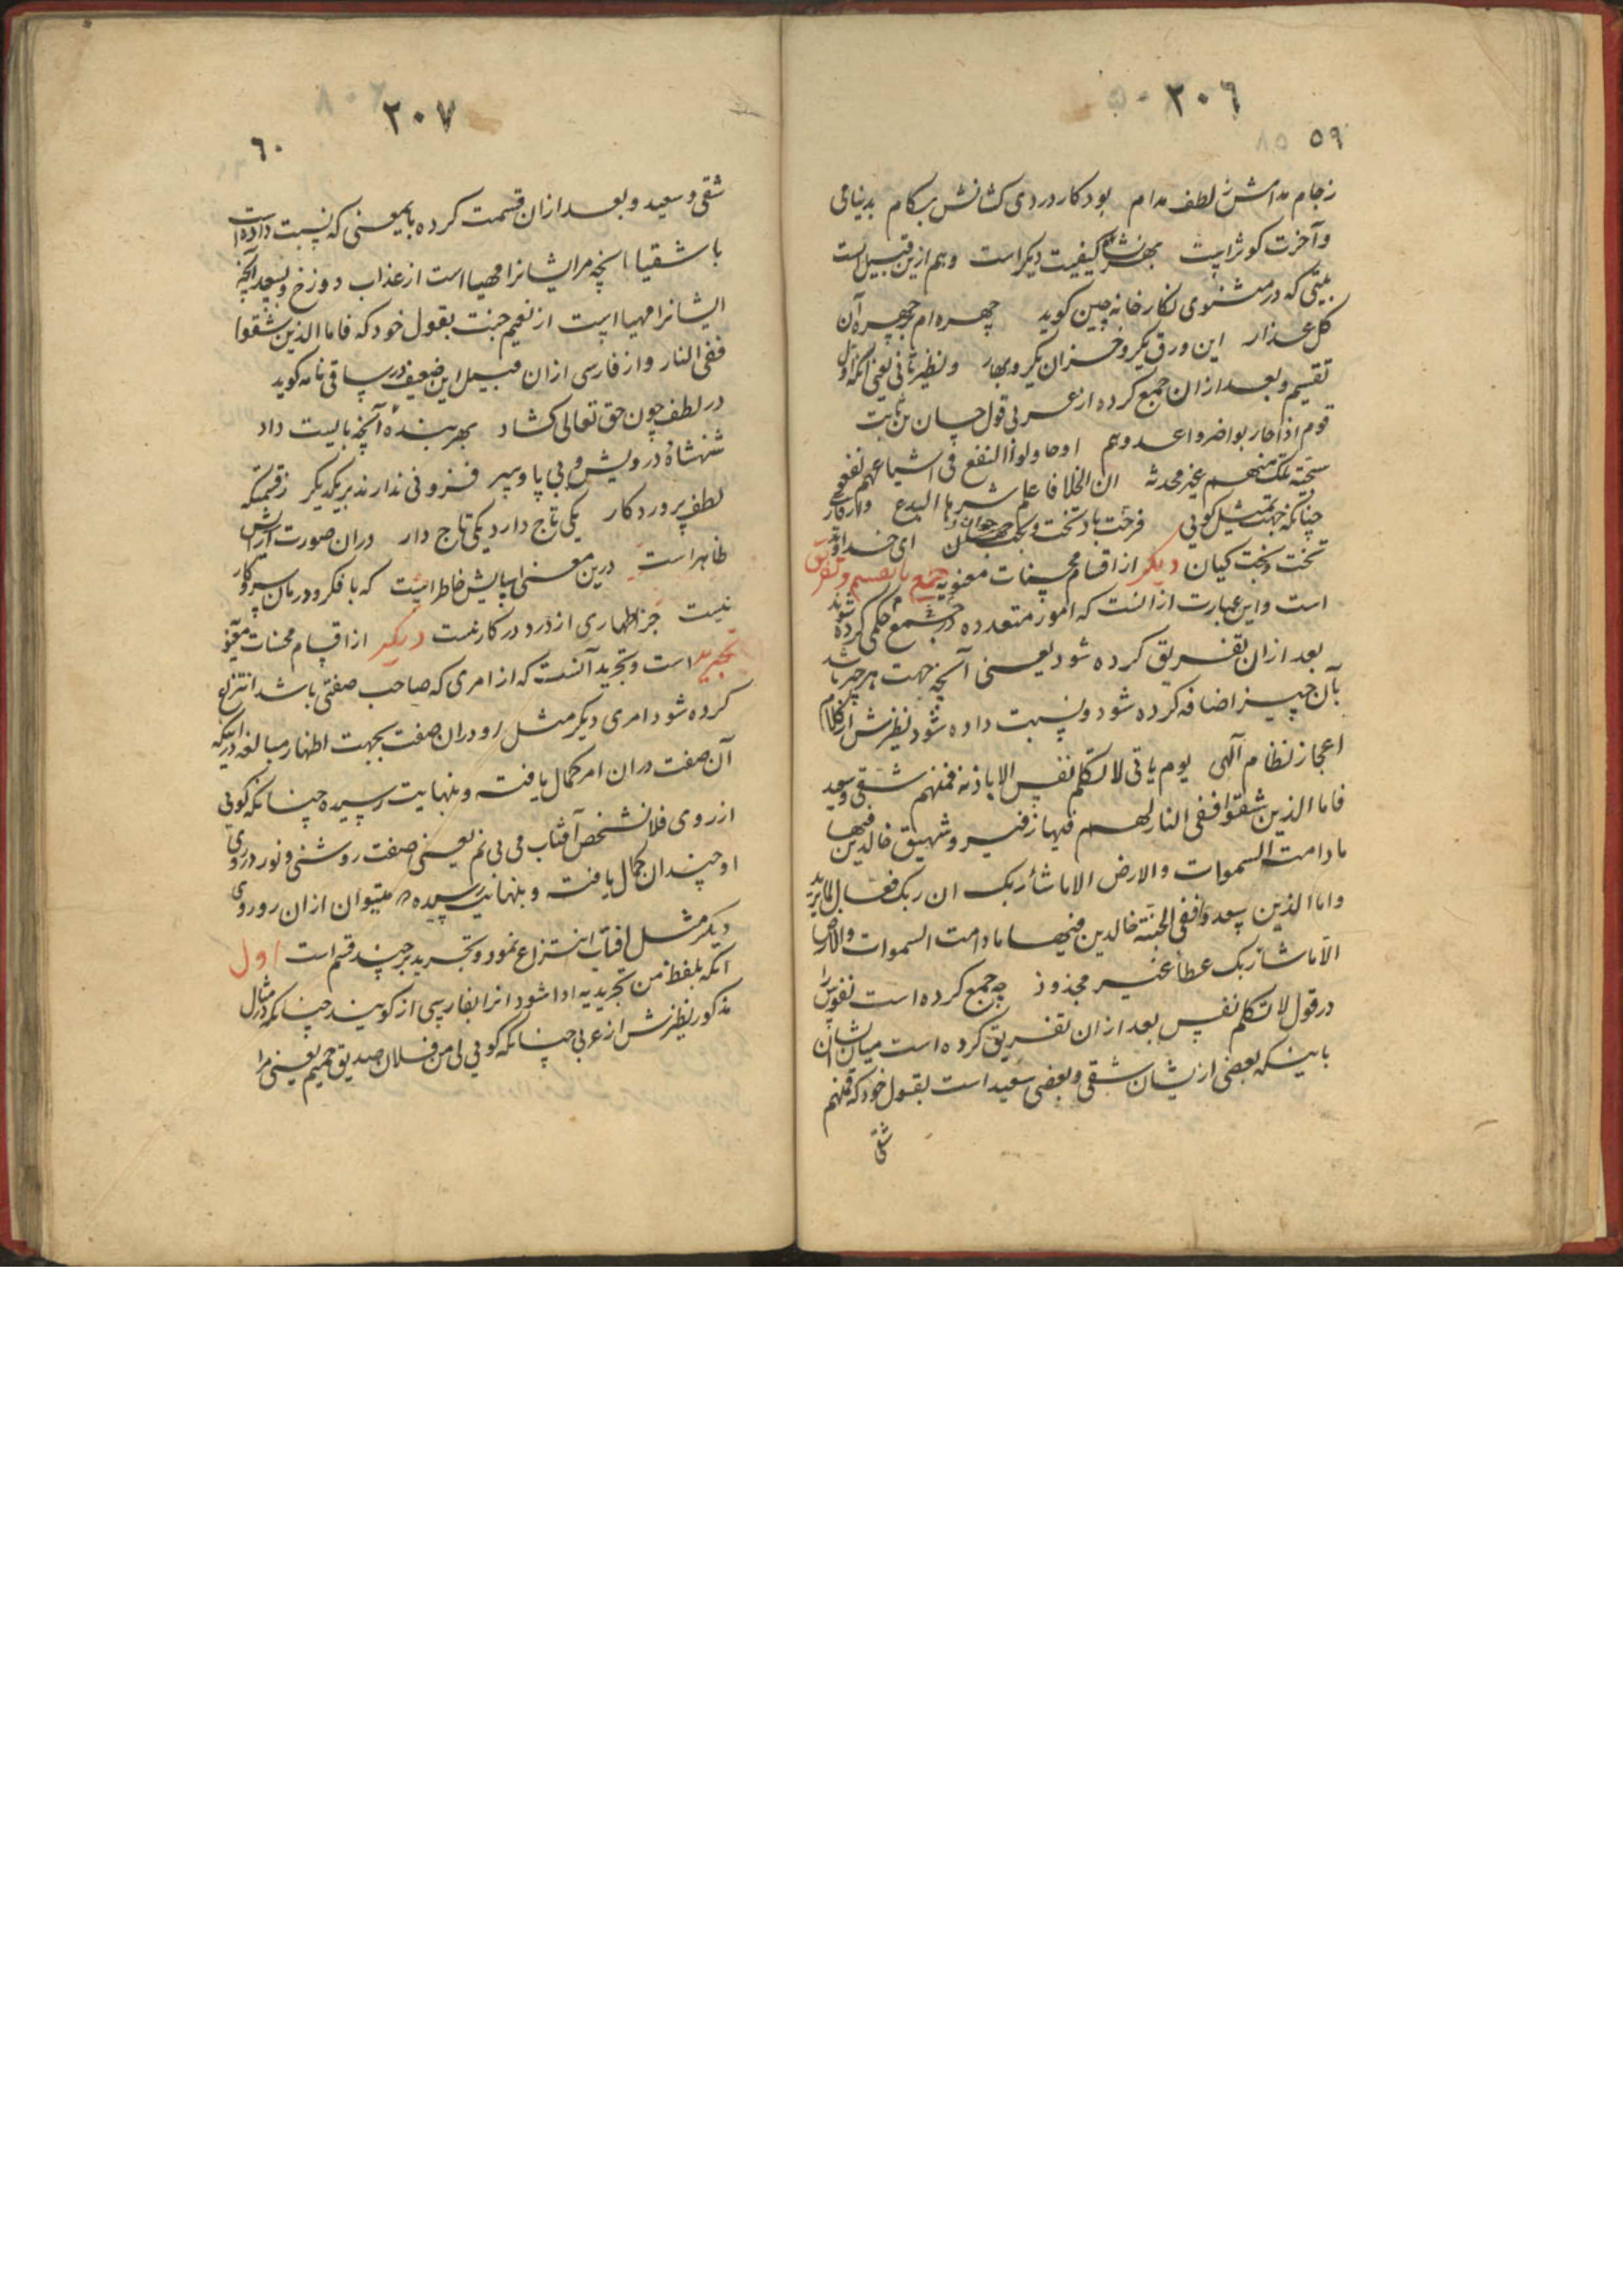 ۲۰۶
۵۹
ز جام مدامش ز لطف مدام بود کار دردی کشانش بکام بدنیا می
و آخرت کوثر است بهر نشأ کیفیت دیکر است و هم ازین قبیل است
بیتی که در مثنوی نکار خانه چین کوید چهره ام بر چهره آن
کل عذار این ورق یکرو خزان یکرو بهار و نظیر ثانی یعنی آنکه اول
تقسیم و بعد ازان جمع کرده از عربی قول حسان بن ثابت
قوم اذا حاربوا ضروا عدوهم او حاولوا النفع فی اشیاعهم نفعوا
سجیة تلک منهم غیر محدثة ان الخلائق فاعلم شرها البدع و از فارسی
چنانکه جهت تمثیل کویی فرخت باد تخت و بخت جوان ای خداوند
تخت و بخت کیان دیکر از اقسام محسنات معنویه جمع با تقسیم و تفریق
است و این عبارت از آنست که امور متعدده در تحت جمع حکمی کرده شوند
بعد ازان تفریق کرده شود یعنی آنچه جهت هر چیز باشد
بآن چیز اضافه کرده شود و نسبت داده شود نظیرش از کلام
اعجاز نظام آلهی یوم یاتی لا تکلم نفس الا باذنه فمنهم شقی و سعید
فاما الذین شقوا ففی النار لهم فیها زفیر و شهیق خالدین فیها
مادامت السموات والارض الا ماشأ ربک ان ربک فعال لما یرید
واما الذین سعدوا ففی الجنته خالدین فیها مادامت السموات والارض
الا ماشا ربک عطأ غیر مجذوذ چه جمع کرده است نفوس را
در قول لا تکلم نفس بعد ازان تفریق کرده است میان ایشان
باینکه بعضی ازیشان شقی و بعضی سعید است بقول خود که فمنهم
شقی
۲۰۷
۶۰
شقی و سعید و بعد ازان قسمت کرده بایمعنی که نسبت داده است
باشقیا آنچه مر ایشانرا مهیا است از عذاب دوزخ و بسعدا آنچه
ایشانرا مهیا است از نعیم جنت بقول خود که فاما الذین شقوا
ففی النار و از فارسی ازان قبیل این ضعیف در ساقی نامه کوید
در لطف چون حق تعالی کشاد بهر بندهٔ آنچه بایست داد
شهنشاه و درویش و بی پا و سر فزونی ندارند بر یکدیکر ز قسمتکه
لطف پروردکار یکی تاج دارد یکی تاج دار دران صورت آرایش
ظاهر است درین معنی آسایش خاطر است که با فکر و درمان سر و کار
نیست جز اظهاری از درد در کار نیست دیکر از اقسام محسنات معنویه
تجرید است و تجرید آنست که از امری که صاحب صفتی باشد انتزاع
کرده شود امری دیکر مثل او دران صفت بجهت اظهار مبالغه در اینکه
آن صفت دران امر کمال یافته و بنهایت رسیده چنانکه کویی
از روی فلان شخص آفتاب می بینم یعنی صفت روشنی و نور در روی
او چندان کمال یافته و بنهایت رسیده که میتوان ازان رو روی
دیکر مثل افتاب انتزاع نمود و تجرید بر چند قسم است اول
آنکه بلفظ من تجریدیه ادا شود و انرا بفارسی از کویند چنانکه در مثال
مذکور نظیرش از عربی چنانکه کویی لی من فلان صدیق حمیم یعنی مرا